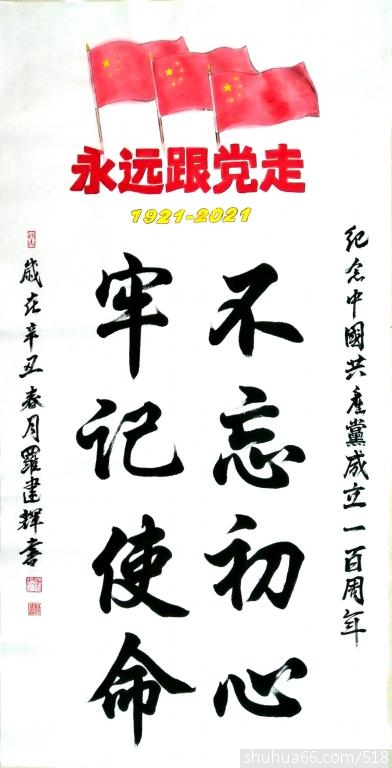 永远跟党走
1921-2021
纪念中國共產黨成立一百周年
不忘初心
牢记使命
歲在辛丑春月羅建輝書
shuhua66.com/518